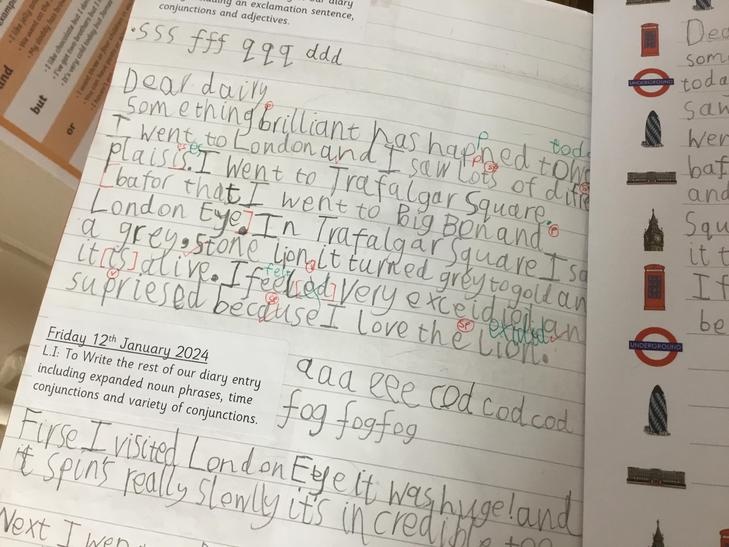 an exclamation sentence,
conjunctions and adjectives.
and
but
or
.sss fff qqq ddd
Dear dairy
something brilliant has haphed
I went to London and I saw lots of
plaisis. I went to Trafalgar Square.
[bafor that I went to Big Ben and
London Eye.] In Trafalgar Square I
a grey. stone lion it turned grey to gold an
it [is] alive. I feel[ed] very
supriesed because I love the Lion.
Friday 12th January 2024
L.I: To Write the rest of our diary entry
including expanded noun phrases, time
conjunctions and variety of conjunctions.
aaa eee cod cod cod
fog fogfog
Firse I visited London Eye it was huge! and
it spins really slowly it's incredible
Next I
UNDERGROUND
UNDERGROUND
Dea
som
toda
saw
wen
baf
and
Squ
it t
I f
be